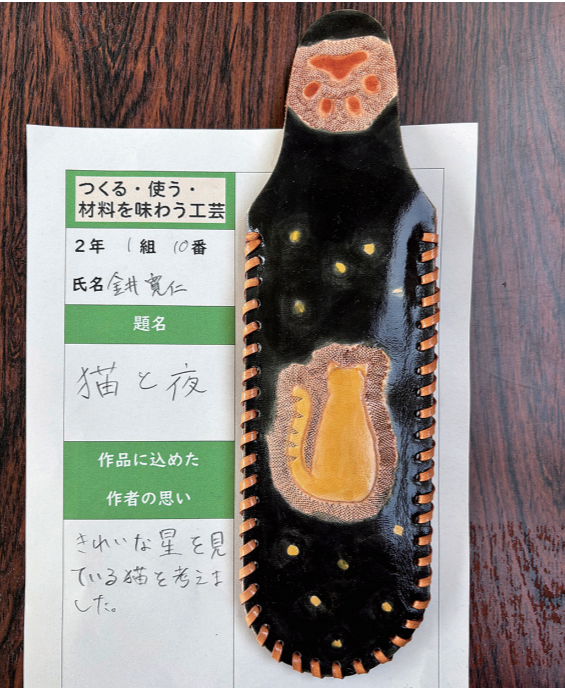 つくる・使う・
材料を味わう工芸
2年 1組 10番
氏名 金井 寛仁
題名
猫と夜
作品に込めた
作者の思い
きれいな星を見
ている猫を考えま
した。